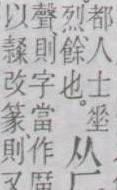 都人士
烈餘也。
从厂
聲則字當作
以
改篆則又